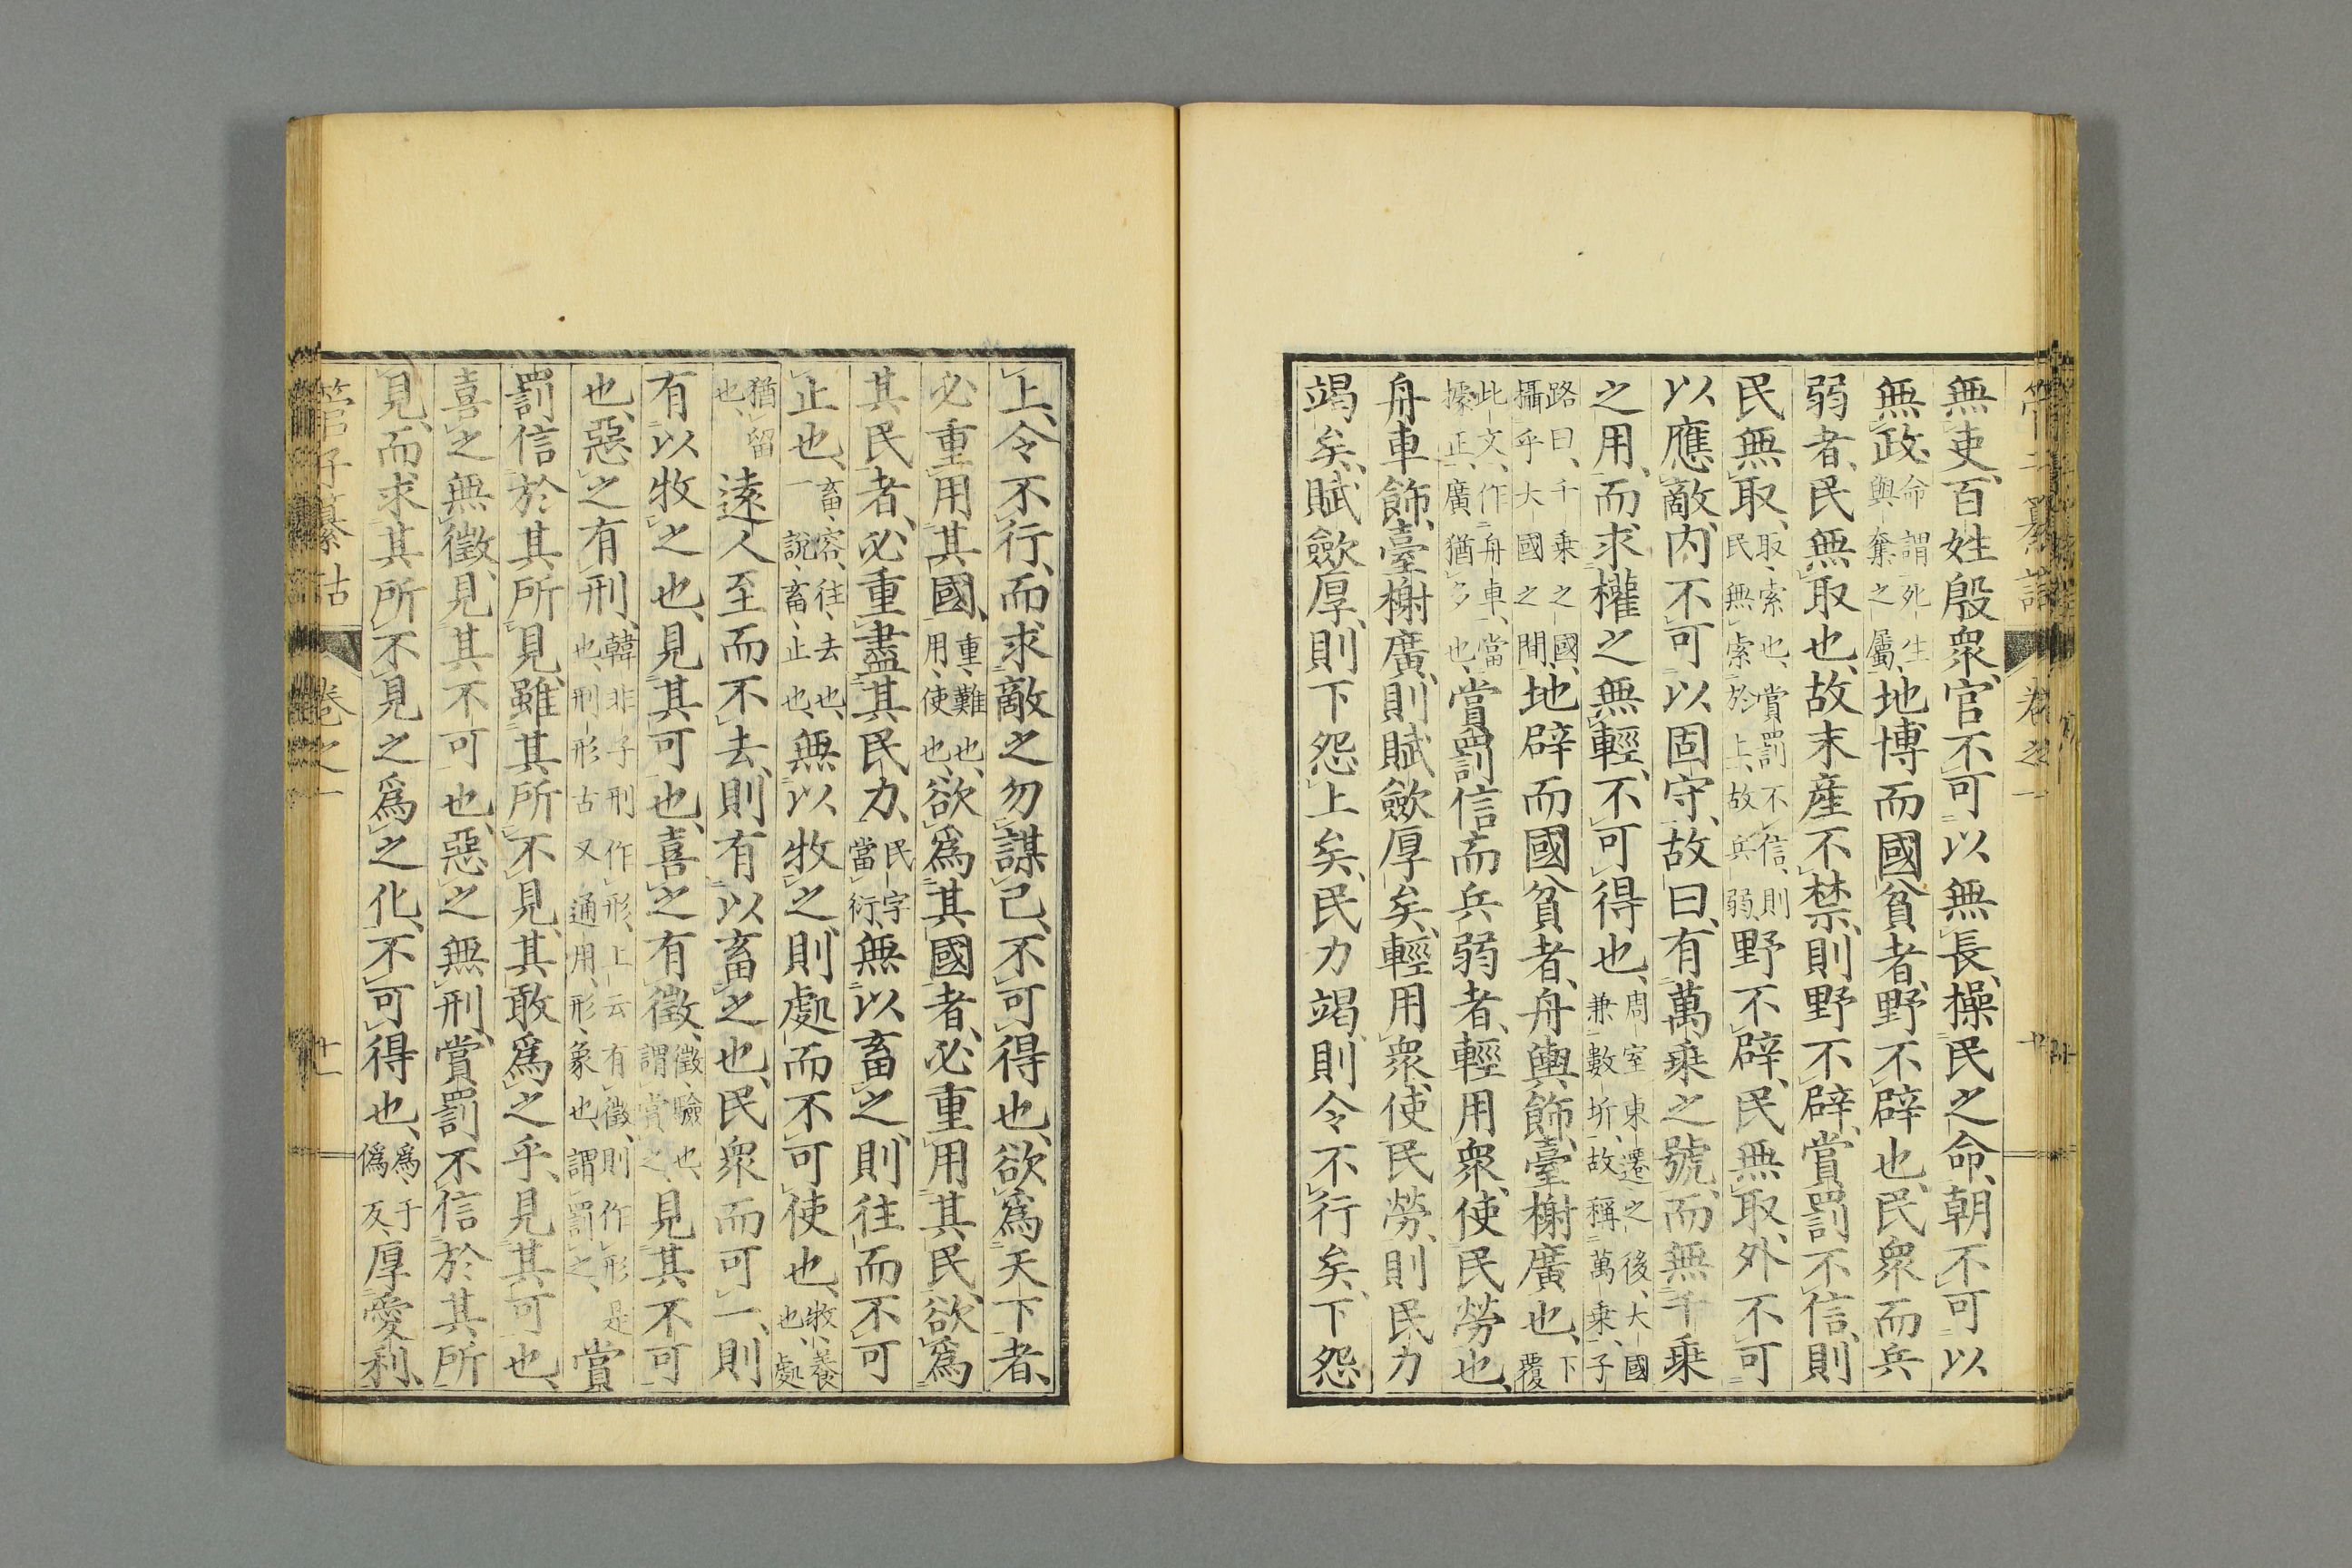 管子纂詁 卷之一
無吏、百姓殷衆、官不可以無長、操民之命、朝不可以
無政、命謂死生與奪之屬、地博而國貧者、野不辟也、民衆而兵
弱者、民無取也、故末産不禁、則野不辟、賞罰不信、則
民無取、取、索也、賞罰不信、則民無索於上、故兵弱、野不辟、民無取、外不可
以應敵、内不可以固守、故曰、有萬乗之號、而無千乗
之用、而求權之無輕、不可得也、周室東遷之後、大國兼數圻、故稱萬乗、子
路曰、千乗之國、攝乎大國之間、地辟而國貧者、舟輿飾、臺榭廣也、下覆
此文、作舟車、當據正、廣猶多也、賞罰信而兵弱者、輕用衆、使民勞也、
舟車飾、臺榭廣、則賦斂厚矣、輕用衆、使民勞、則民力
竭矣、賦斂厚、則下怨上矣、民力竭、則令不行矣、下怨
上、令不行、而求敵之勿謀己、不可得也、欲爲天下者、
必重用其國、重、難也、用、使也、欲爲其國者、必重用其民、欲爲
其民者、必重盡其民力、民字當衍、無以畜之、則往而不可
止也、畜、容、往、去也、一說、畜、止也、無以牧之、則處而不可使也、牧、養也、處
猶留也、遠人至而不去、則有以畜之也、民衆而可一、則
有以牧之也、見其可也、喜之有徵、徵、驗也、謂賞之、見其不可
也、惡之有刑、韓非子刑作形、上云有徵、則作形是也、刑形古又通用、形、象也、謂罰之、賞
罰信於其所見、雖其所不見、其敢爲之乎、見其可也、
喜之無徵、見其不可也、惡之無刑、賞罰不信於其所
見、而求其所不見之爲之化、不可得也、爲、于僞反、厚愛利、
管子纂詁 卷之一 十一